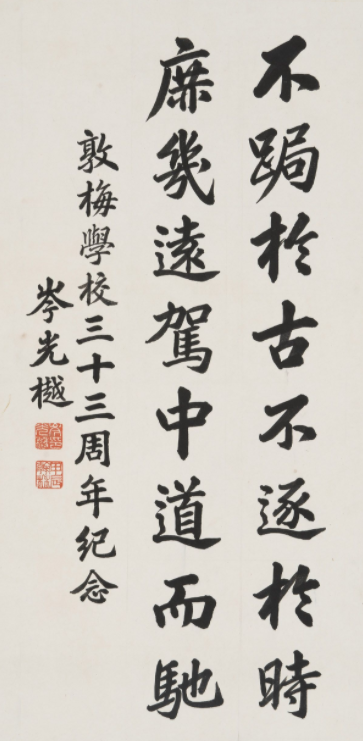 不跼於古不逐於時
庶幾遠駕中道而馳
敦梅學校三十三周年紀念
岑光樾